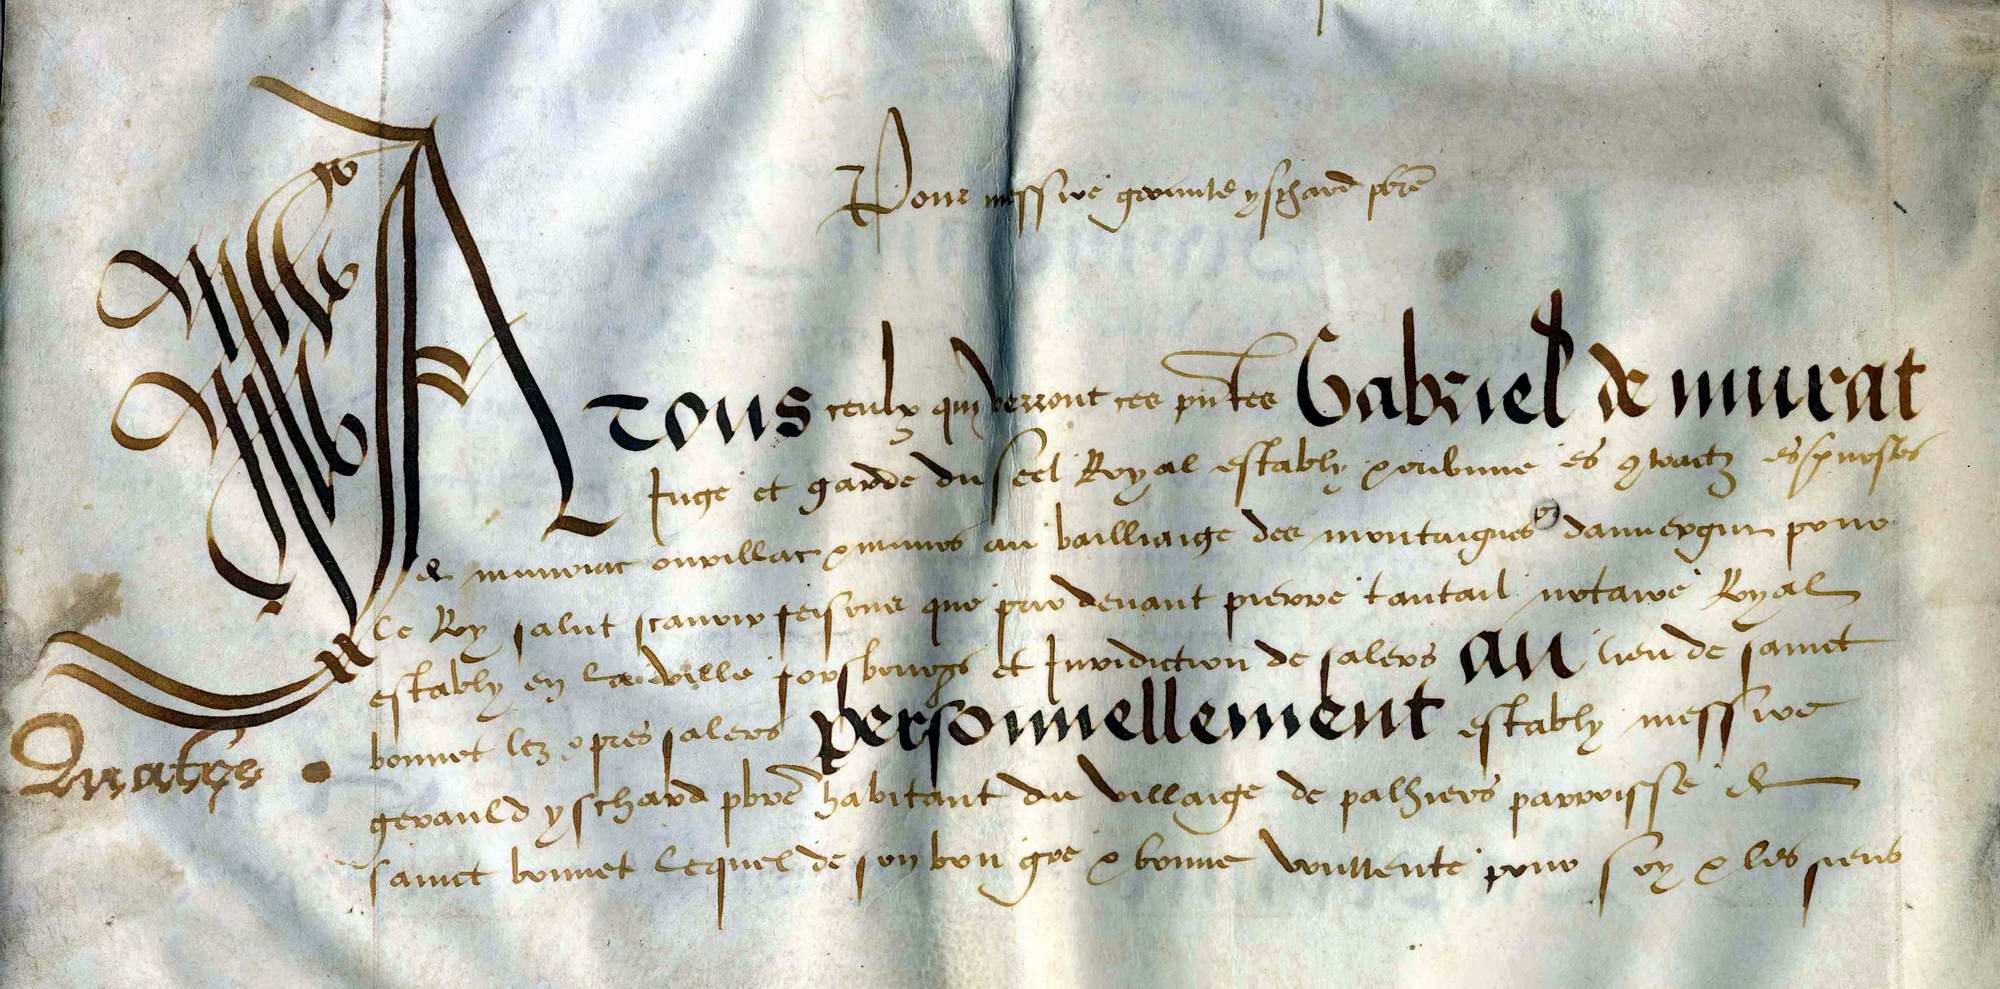 Pour messire geraulde yschard pbre
A tous ceulx qui verront ces pntes Gabriel de murat
Juge et garde du seel Royal estably & ordonne es contraictz es prevostes
de mauriac & au bailliaige des montaignes dauvergne pour
le Roy salut scavoir faisons que par devant pierre tantail notaire Royal
estably en la ville forsbourgs et Juridiction de salers au lieu de sainct
bonnet lez pres salers personnellement estably messire
gerauld yschard pbre habitant du villaige de palhiers parroisse de
Quatre .
sainct bonnet lequel de son bon gre & bonne voulente pour soy & les siens